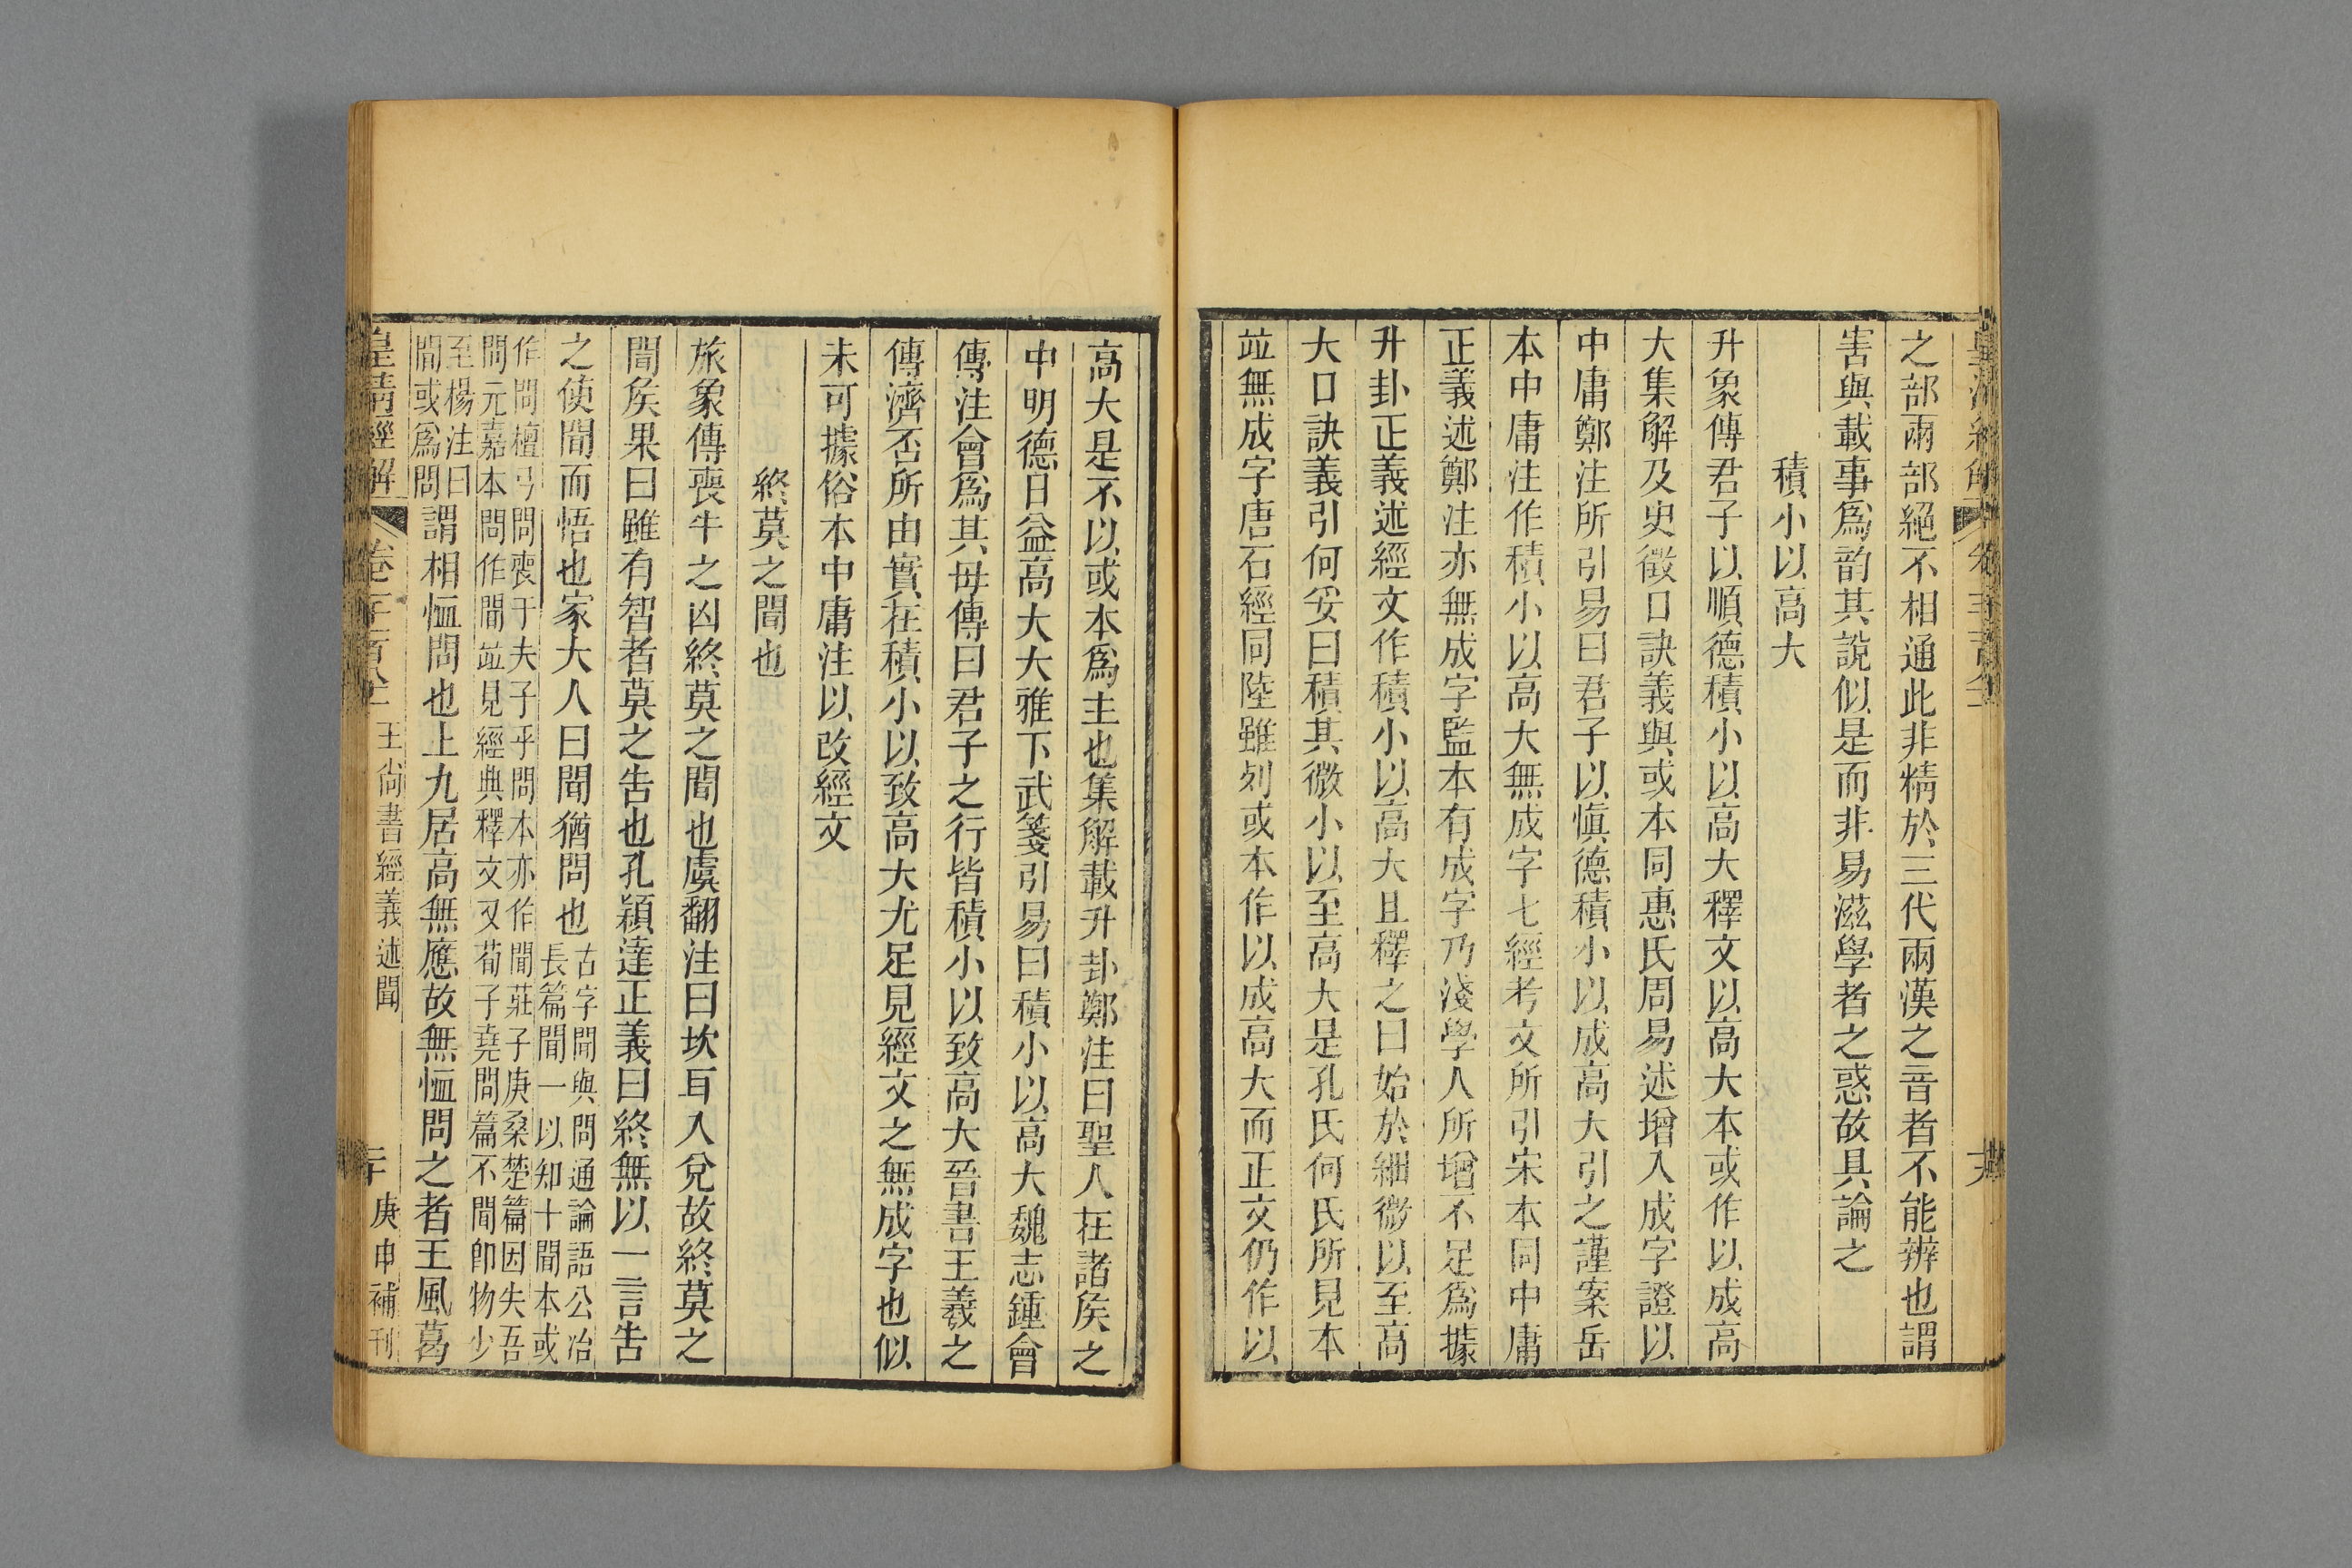 之部兩部絕不相通此非精於三代兩漢之音者不能辨也謂
害與載事爲韵其說似是而非易滋學者之惑故具論之
積小以高大
升象傳君子以順德積小以高大釋文以高大本或作以成高
大集解及史徵口訣義與或本同惠氏周易述增入成字證以
中庸鄭注所引易曰君子以愼德積小以成高大引之謹案岳
本中庸注作積小以高大無成字七經考文所引宋本同中庸
正義述鄭注亦無成字監本有成字乃淺學人所增不足爲據
升卦正義述經文作積小以高大且釋之曰始於細微以至高
大口訣義引何妥曰積其微小以至高大是孔氏何氏所見本
竝無成字唐石經同陸雖列或本作以成高大而正文仍作以
高大是不以或本爲主也集解載升卦鄭注曰聖人在諸矦之
中明德日益高大大雅下武箋引易曰積小以高大魏志鍾會
傳注會爲其母傳曰君子之行皆積小以致高大晉書王羲之
傳濟否所由實在積小以致高大尤足見經文之無成字也似
未可據俗本中庸注以改經文
終莫之聞也
旅象傳喪牛之凶終莫之聞也虞翻注曰坎耳入兌故終莫之
聞矦果曰雖有智者莫之告也孔穎達正義曰終無以一言告
之使聞而悟也家大人曰聞猶問也
古字聞與問通論語公冶
長篇聞一以知十聞本或
作問檀弓問喪于夫子乎問本亦作聞莊子庚桑楚篇因失吾
問元嘉本問作聞竝見經典釋文又荀子堯問篇不聞卽物少
至楊注曰
聞或爲問
謂相恤問也上九居高無應故無恤問之者王風葛
皇清經解
卷一千一百八十一
王尙書經義述聞
庚申補刊